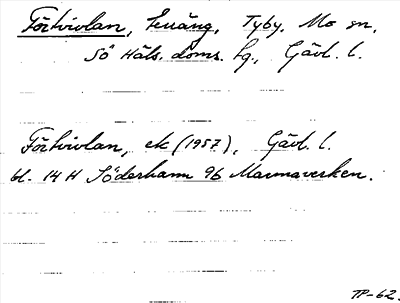 Förtvivlan, terräng, Tyby, Mo sn,
Sö Häls. doms. tg., Gävl. l.
Förtvivlan, ek (1957), Gävl. l.
bl. 14 H Söderhamn 9b Marmaverken.
TP-62.